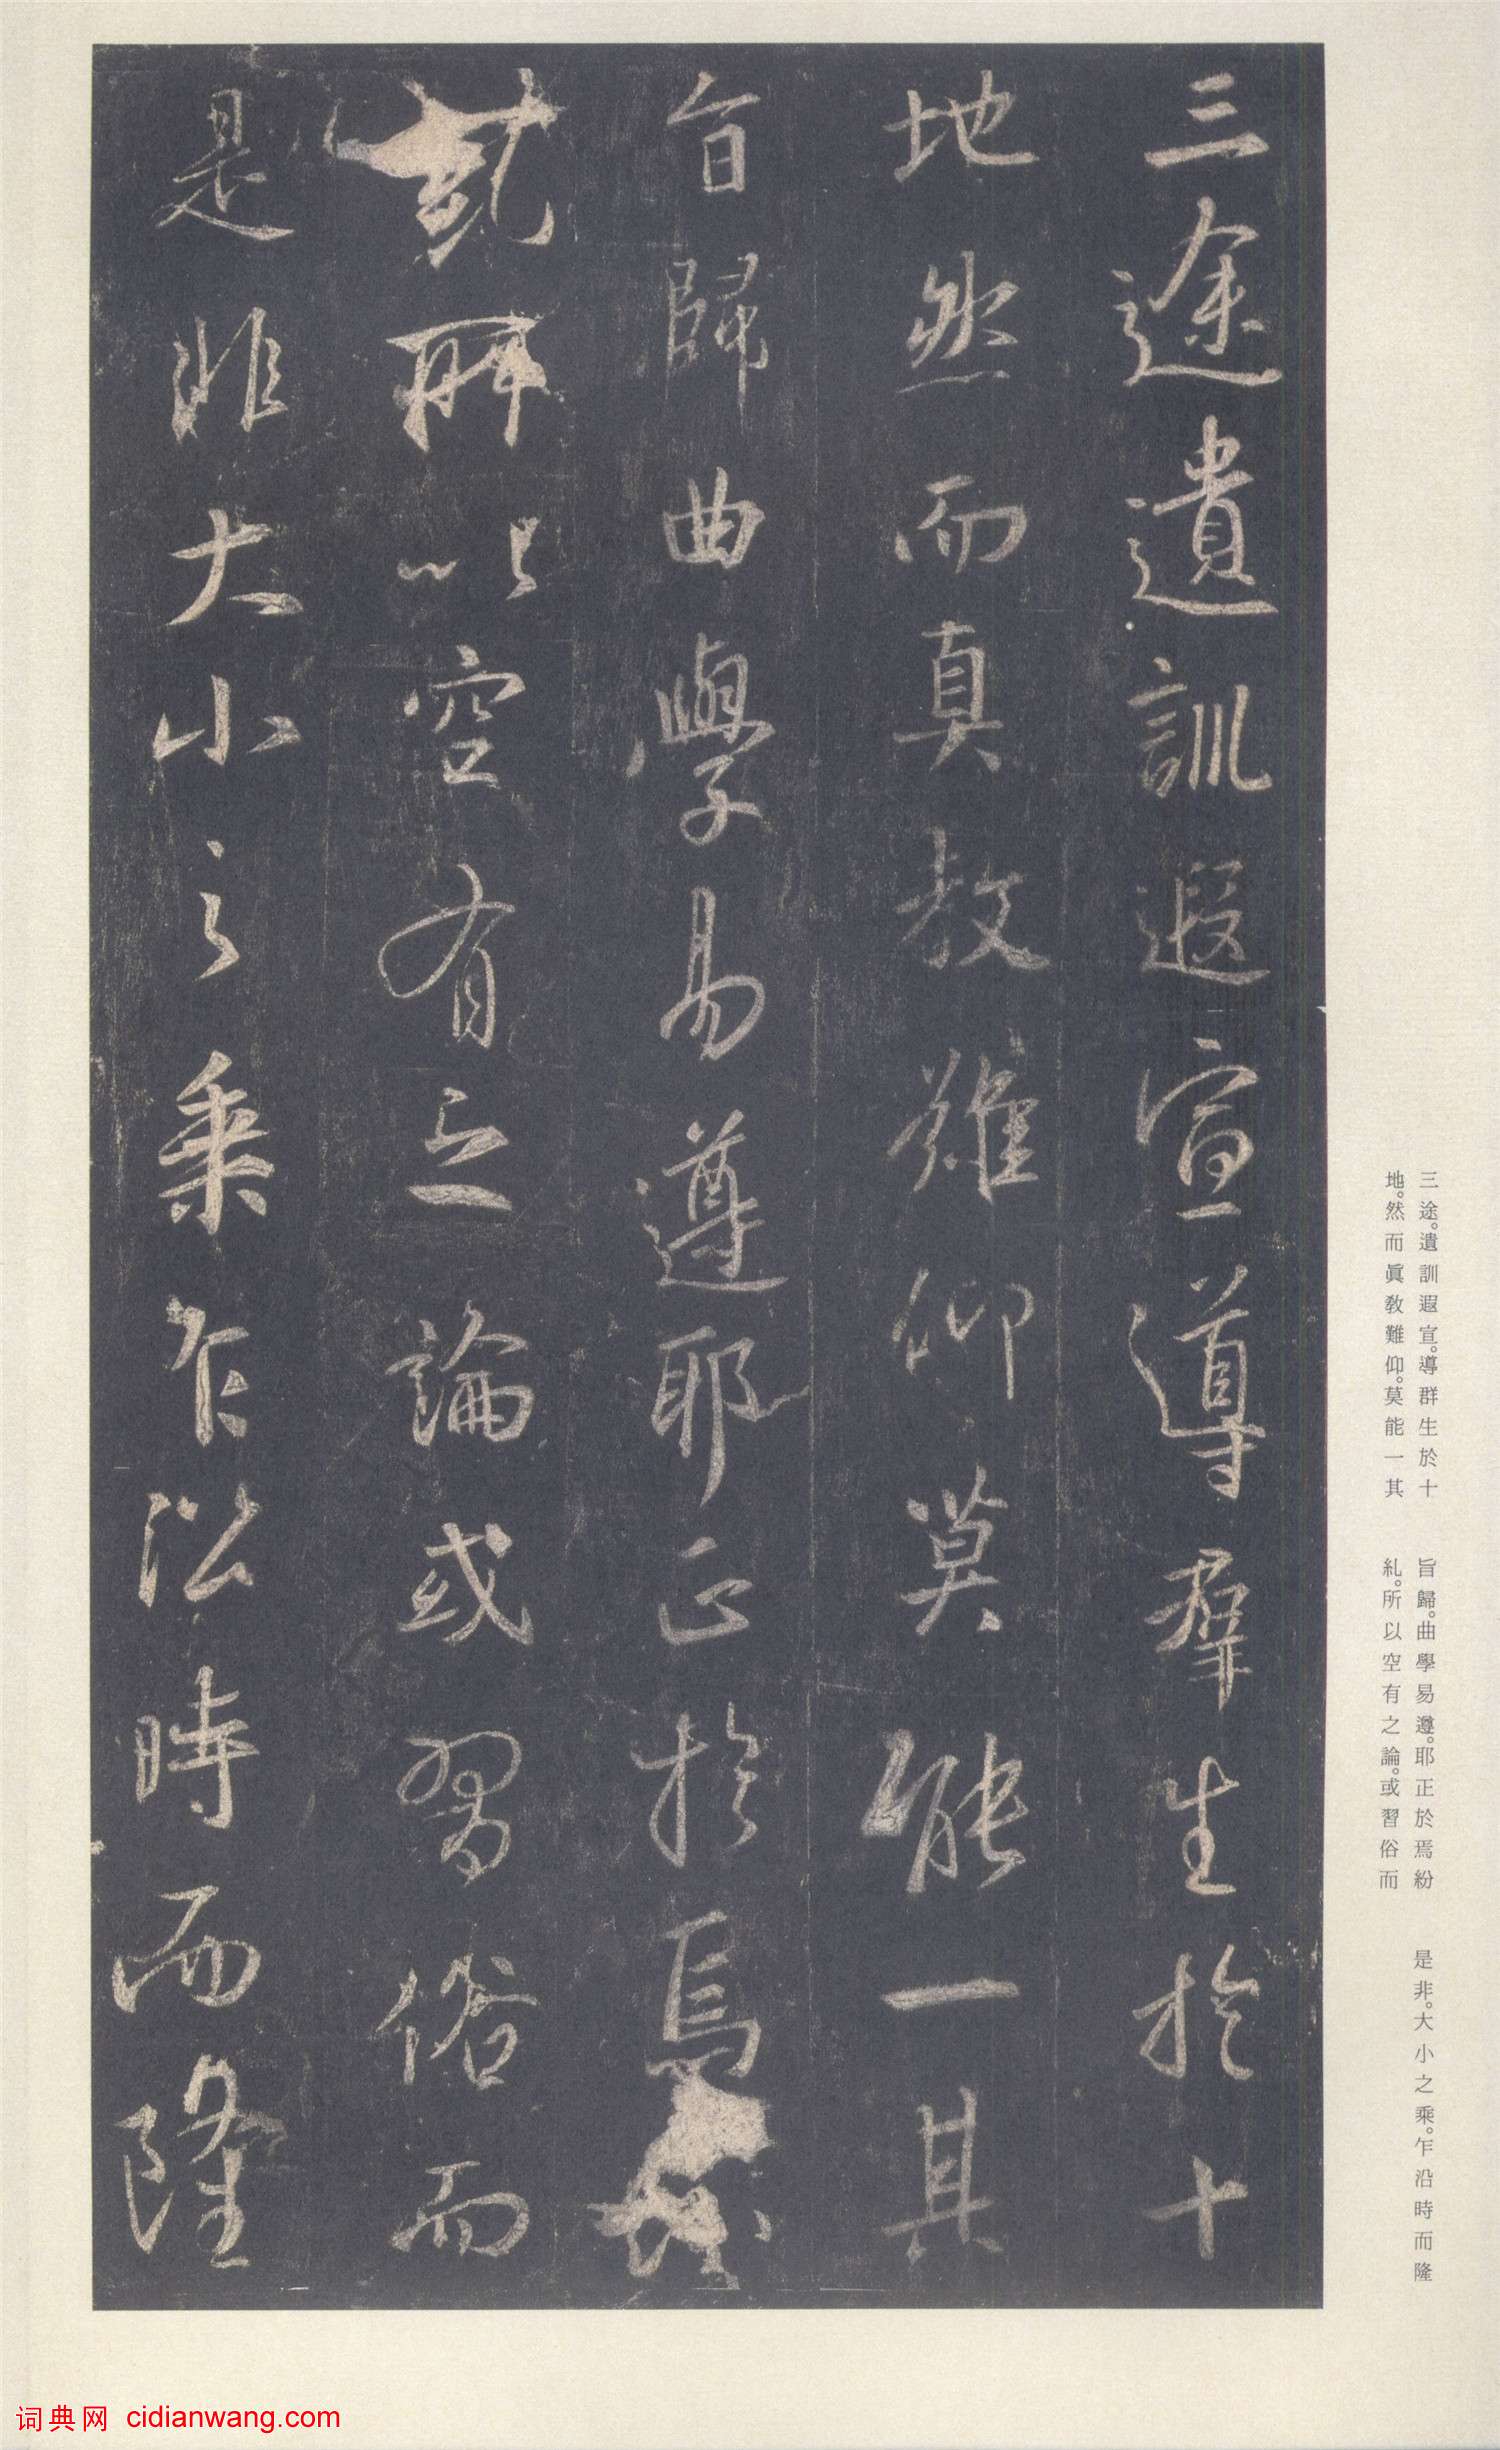 三途遺訓遐宣導羣生於十
地然而真教難仰莫能一其
旨歸曲學易遵耶正於焉
所以空有之論或習俗而
是非大小之乘乍沿時而隆
三途。遺訓遐宣。導群生於十
地。然而眞教難仰。莫能一其
旨歸。曲學易遵。耶正於焉紛
糺。所以空有之論。或習俗而
是非。大小之乘。乍沿時而隆
词典网 cidianwang.com